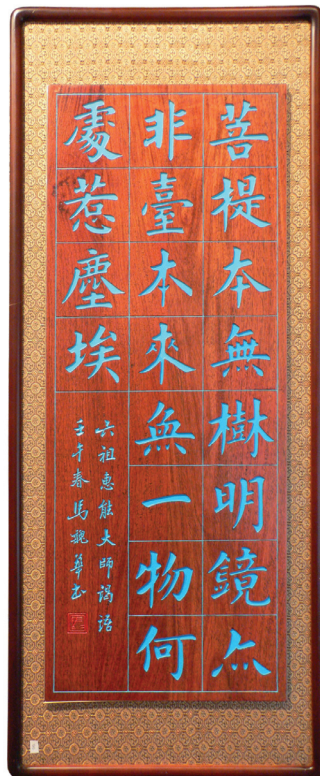 菩提本無樹明鏡亦
非臺本來無一物何
處惹塵埃
六祖惠能大師偈語
壬午春馬魏華書